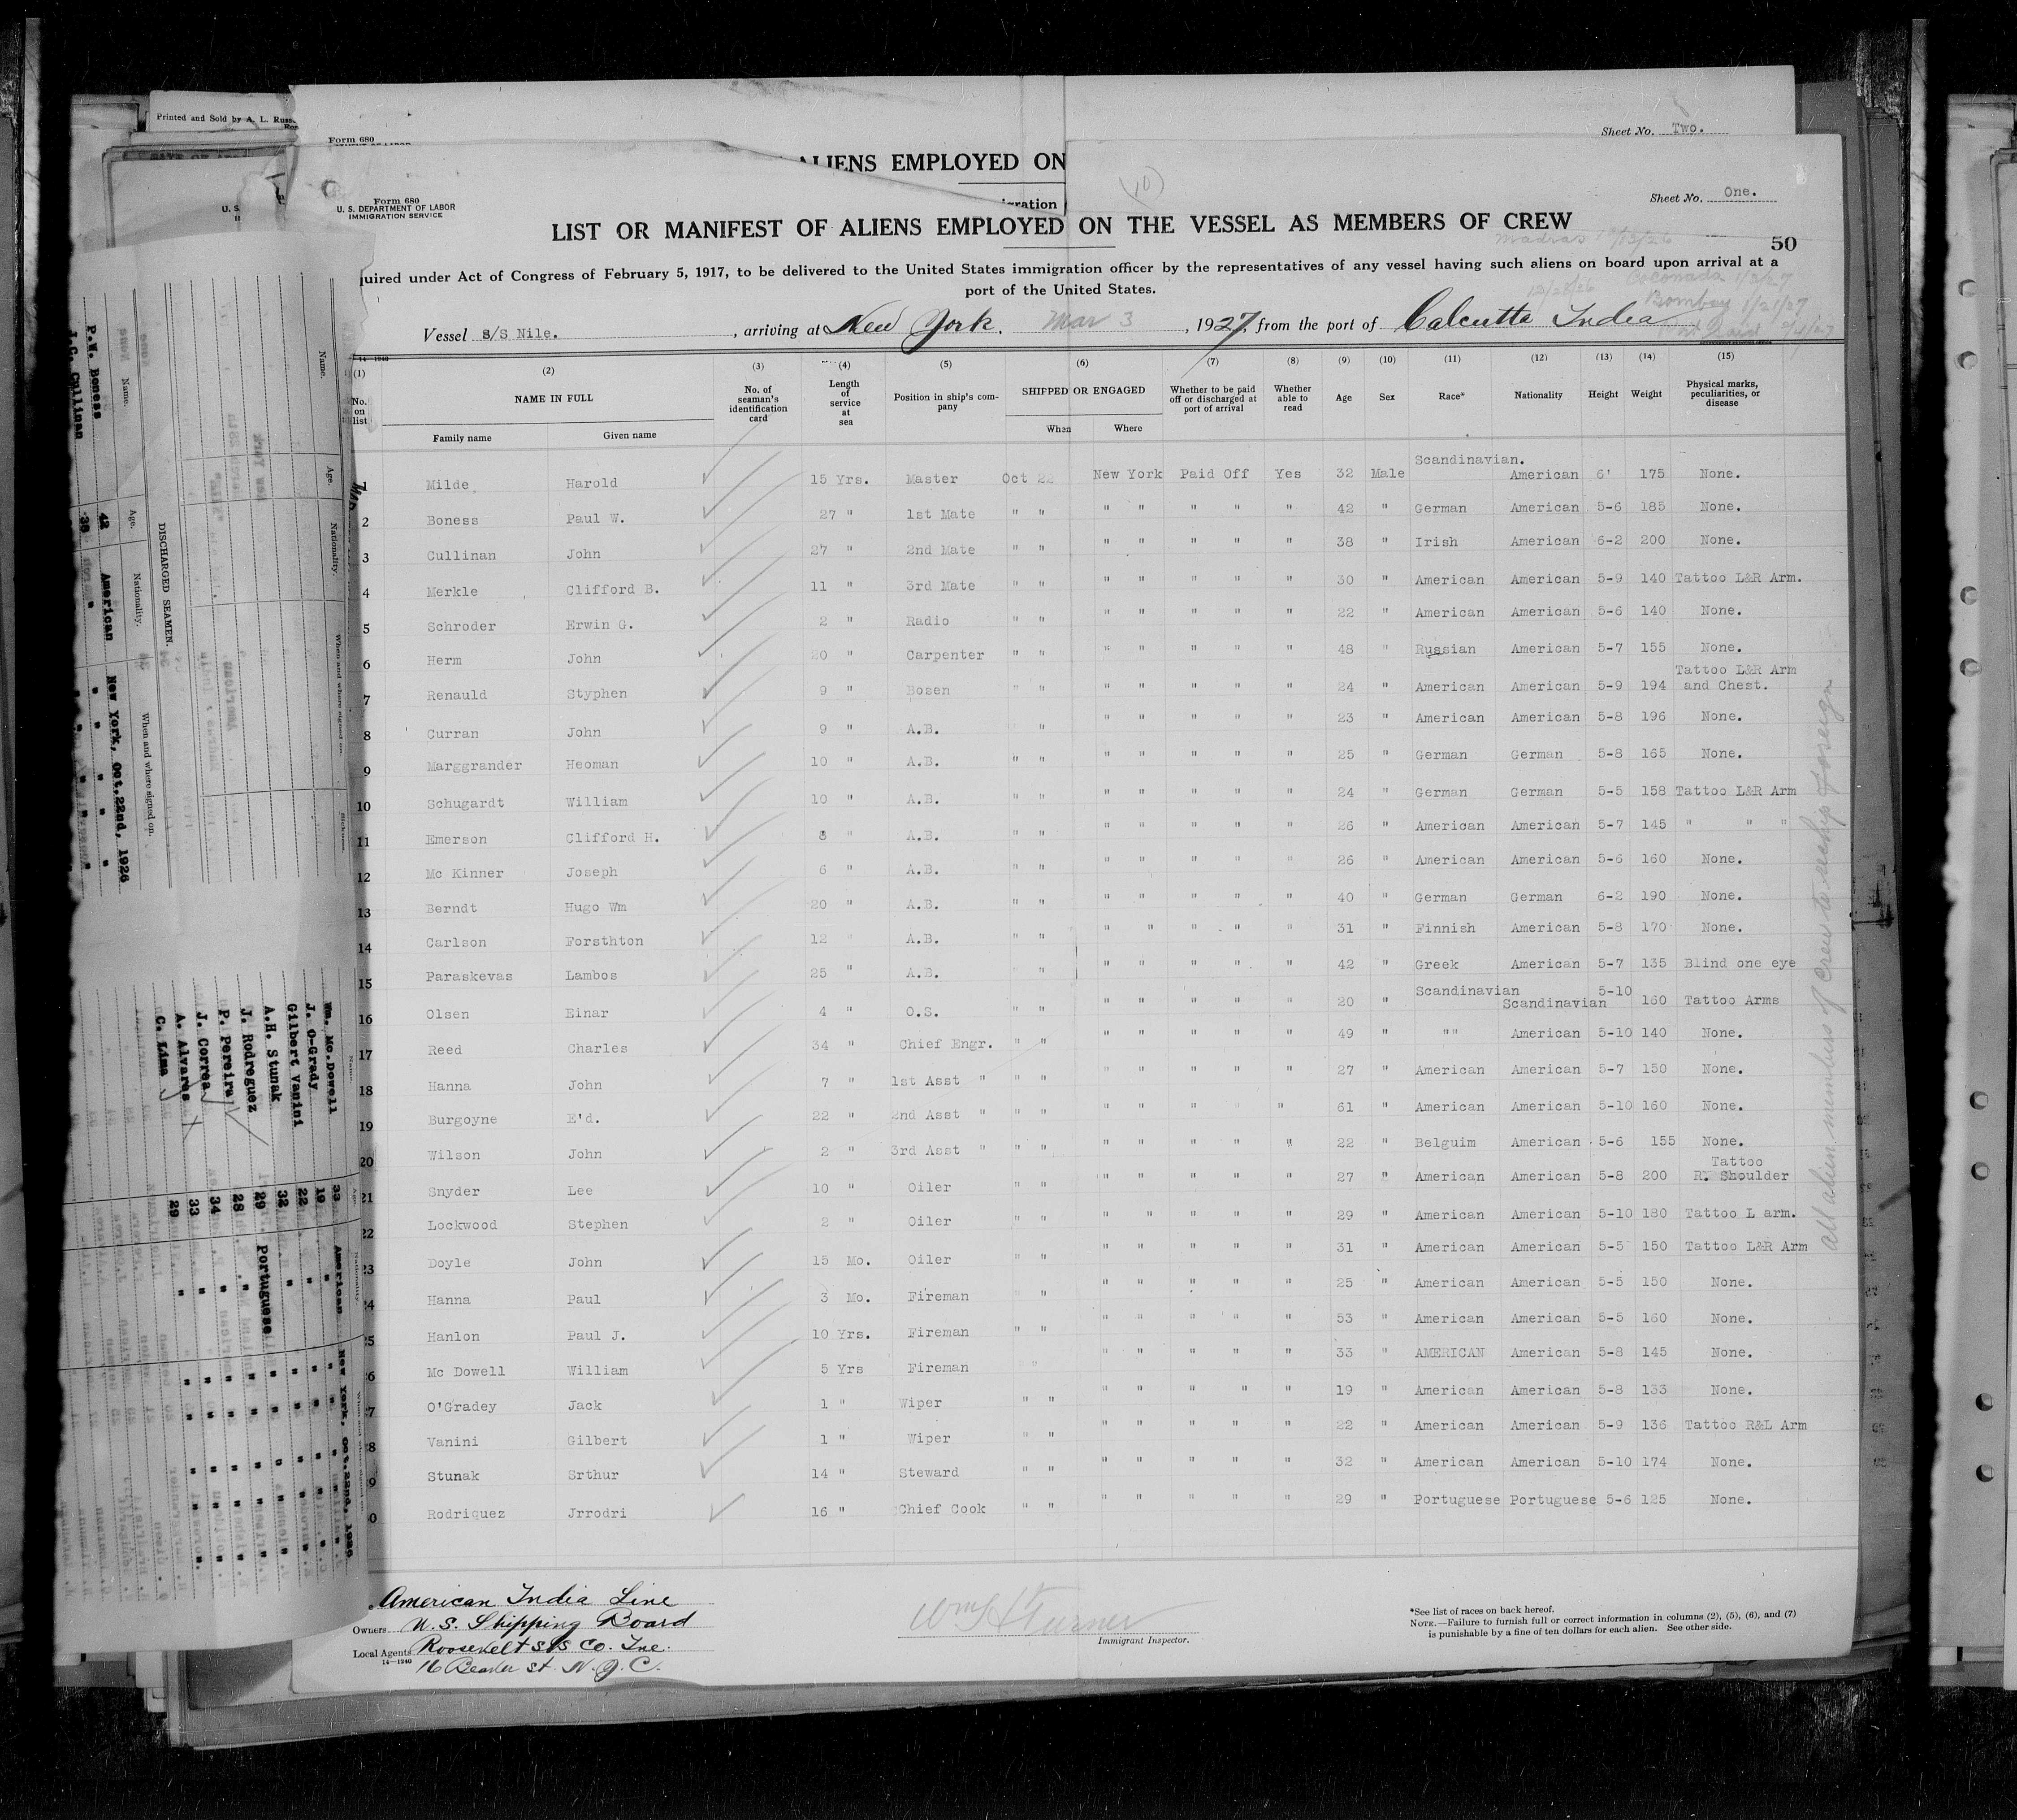 Printed and Sold by A. L. Russ
Form 680
Sheet No. Two.
ALIENS EMPLOYED ON
Form 680
U. S. DEPARTMENT OF LABOR
IMMIGRATION SERVICE
Sheet No. One.
LIST OR MANIFEST OF ALIENS EMPLOYED ON THE VESSEL AS MEMBERS OF CREW
Madras
50
uired under Act of Congress of February 5, 1917, to be delivered to the United States immigration officer by the representatives of any vessel having such aliens on board upon arrival at a
port of the United States.
Coconada 1/3/27
12/28/26 Bombay 1/21/27
Vessel S/S Nile. , arriving at New York. Mar 3 , 1927, from the port of Calcutta India
(1) (2) (3) (4) (5) (6) (7) (8) (9) (10) (11) (12) (13) (14) (15)
No. on list NAME IN FULL Family name Given name No. of seaman's identification card Length of service at sea Position in ship's company SHIPPED OR ENGAGED When Where Whether to be paid off or discharged at port of arrival Whether able to read Age Sex Race* Nationality Height Weight Physical marks, peculiarities, or disease
1 Milde Harold 15 Yrs. Master Oct 22 New York Paid Off Yes 32 Male Scandinavian. American 6' 175 None.
2 Boness Paul W. 27 " 1st Mate " " " " " " " 42 " German American 5-6 185 None.
3 Cullinan John 27 " 2nd Mate " " " " " " " 38 " Irish American 6-2 200 None.
4 Merkle Clifford B. 11 " 3rd Mate " " " " " " " 30 " American American 5-9 140 Tattoo L&R Arm.
5 Schroder Erwin G. 2 " Radio " " " " " " " 22 " American American 5-6 140 None.
6 Herm John 20 " Carpenter " " " " " " " 48 " Russian American 5-7 155 None.
7 Renauld Styphen 9 " Bosen " " " " " " " 24 " American American 5-9 194 Tattoo L&R Arm and Chest.
8 Curran John 9 " A.B. " " " " " " 23 " American American 5-8 196 None.
9 Marggrander Heoman 10 " A.B. " " " " " " " 25 " German German 5-8 165 None.
10 Schugardt William 10 " A.B. " " " " " " " 24 " German German 5-5 158 Tattoo L&R Arm
11 Emerson Clifford H. 8 " A.B. " " " " " " " 26 " American American 5-7 145 " " "
12 Mc Kinner Joseph 6 " A.B. " " " " " " " 26 " American American 5-6 160 None.
13 Berndt Hugo Wm 20 " A.B. " " " " " " " 40 " German German 6-2 190 None.
14 Carlson Forsthton 12 " A.B. " " " " " " " 31 " Finnish American 5-8 170 None.
15 Paraskevas Lambos 25 " A.B. " " " " " " " 42 " Greek American 5-7 135 Blind one eye
16 Olsen Einar 4 " O.S. " " " " " " " 20 " Scandinavian Scandinavian 5-10 160 Tattoo Arms
17 Reed Charles 34 " Chief Engr. " " " " " " " 49 " "" American 5-10 140 None.
18 Hanna John 7 " 1st Asst " " " " " " " " 27 " American American 5-7 150 None.
19 Burgoyne E'd. 22 " 2nd Asst " " " " " " " " 61 " American American 5-10 160 None.
20 Wilson John 2 " 3rd Asst " " " " " " " " 22 " Belguim American 5-6 155 None.
21 Snyder Lee 10 " Oiler " " " " " " " 27 " American American 5-8 200 Tattoo R. Shoulder
22 Lockwood Stephen 2 " Oiler " " " " " " " 29 " American American 5-10 180 Tattoo L arm.
23 Doyle John 15 Mo. Oiler " " " " " " " 31 " American American 5-5 150 Tattoo L&R Arm
24 Hanna Paul 3 Mo. Fireman " " " " " " " 25 " American American 5-5 150 None.
25 Hanlon Paul J. 10 Yrs. Fireman " " " " " " " 53 " American American 5-5 160 None.
26 Mc Dowell William 5 Yrs Fireman " " " " " " " 33 " AMERICAN American 5-8 145 None.
27 O'Gradey Jack 1 " Wiper " " " " " " " 19 " American American 5-8 133 None.
28 Vanini Gilbert 1 " Wiper " " " " " " " 22 " American American 5-9 136 Tattoo R&L Arm
29 Stunak Srthur 14 " Steward " " " " " " " 32 " American American 5-10 174 None.
30 Rodriquez Jrrodri 16 " Chief Cook " " " " " " " 29 " Portuguese Portuguese 5-6 125 None.
All alien members of crew to reship foreign
American India Line
Owners U.S. Shipping Board
Local Agents Roosevelt S/S Co. Inc.
14-1240
16 Beaver St. N.Y.C.
Wm H Turner
Immigrant Inspector.
*See list of races on back hereof.
NOTE.—Failure to furnish full or correct information in columns (2), (5), (6), and (7)
is punishable by a fine of ten dollars for each alien. See other side.
DISCHARGED SEAMEN.
Name. Age. Nationality. When and where signed on.
P.W. Boness 42 American New York, Oct.22nd, 1926
J.C. Cullinan 38 " " " "
Name. Age. Nationality. When and where signed on. Sickness.
Wm. Mc.Dowell 33 American New York, Oct.22nd, 1926
J. O-Grady 19 "
Gilbert Vanini 22 "
A.H. Stunak 32 "
J. Rodreguez 29 Portuguese
P. Pereira 28 "
J. Correa 34 "
A. Alvares 33 "
C. Lima 29 "